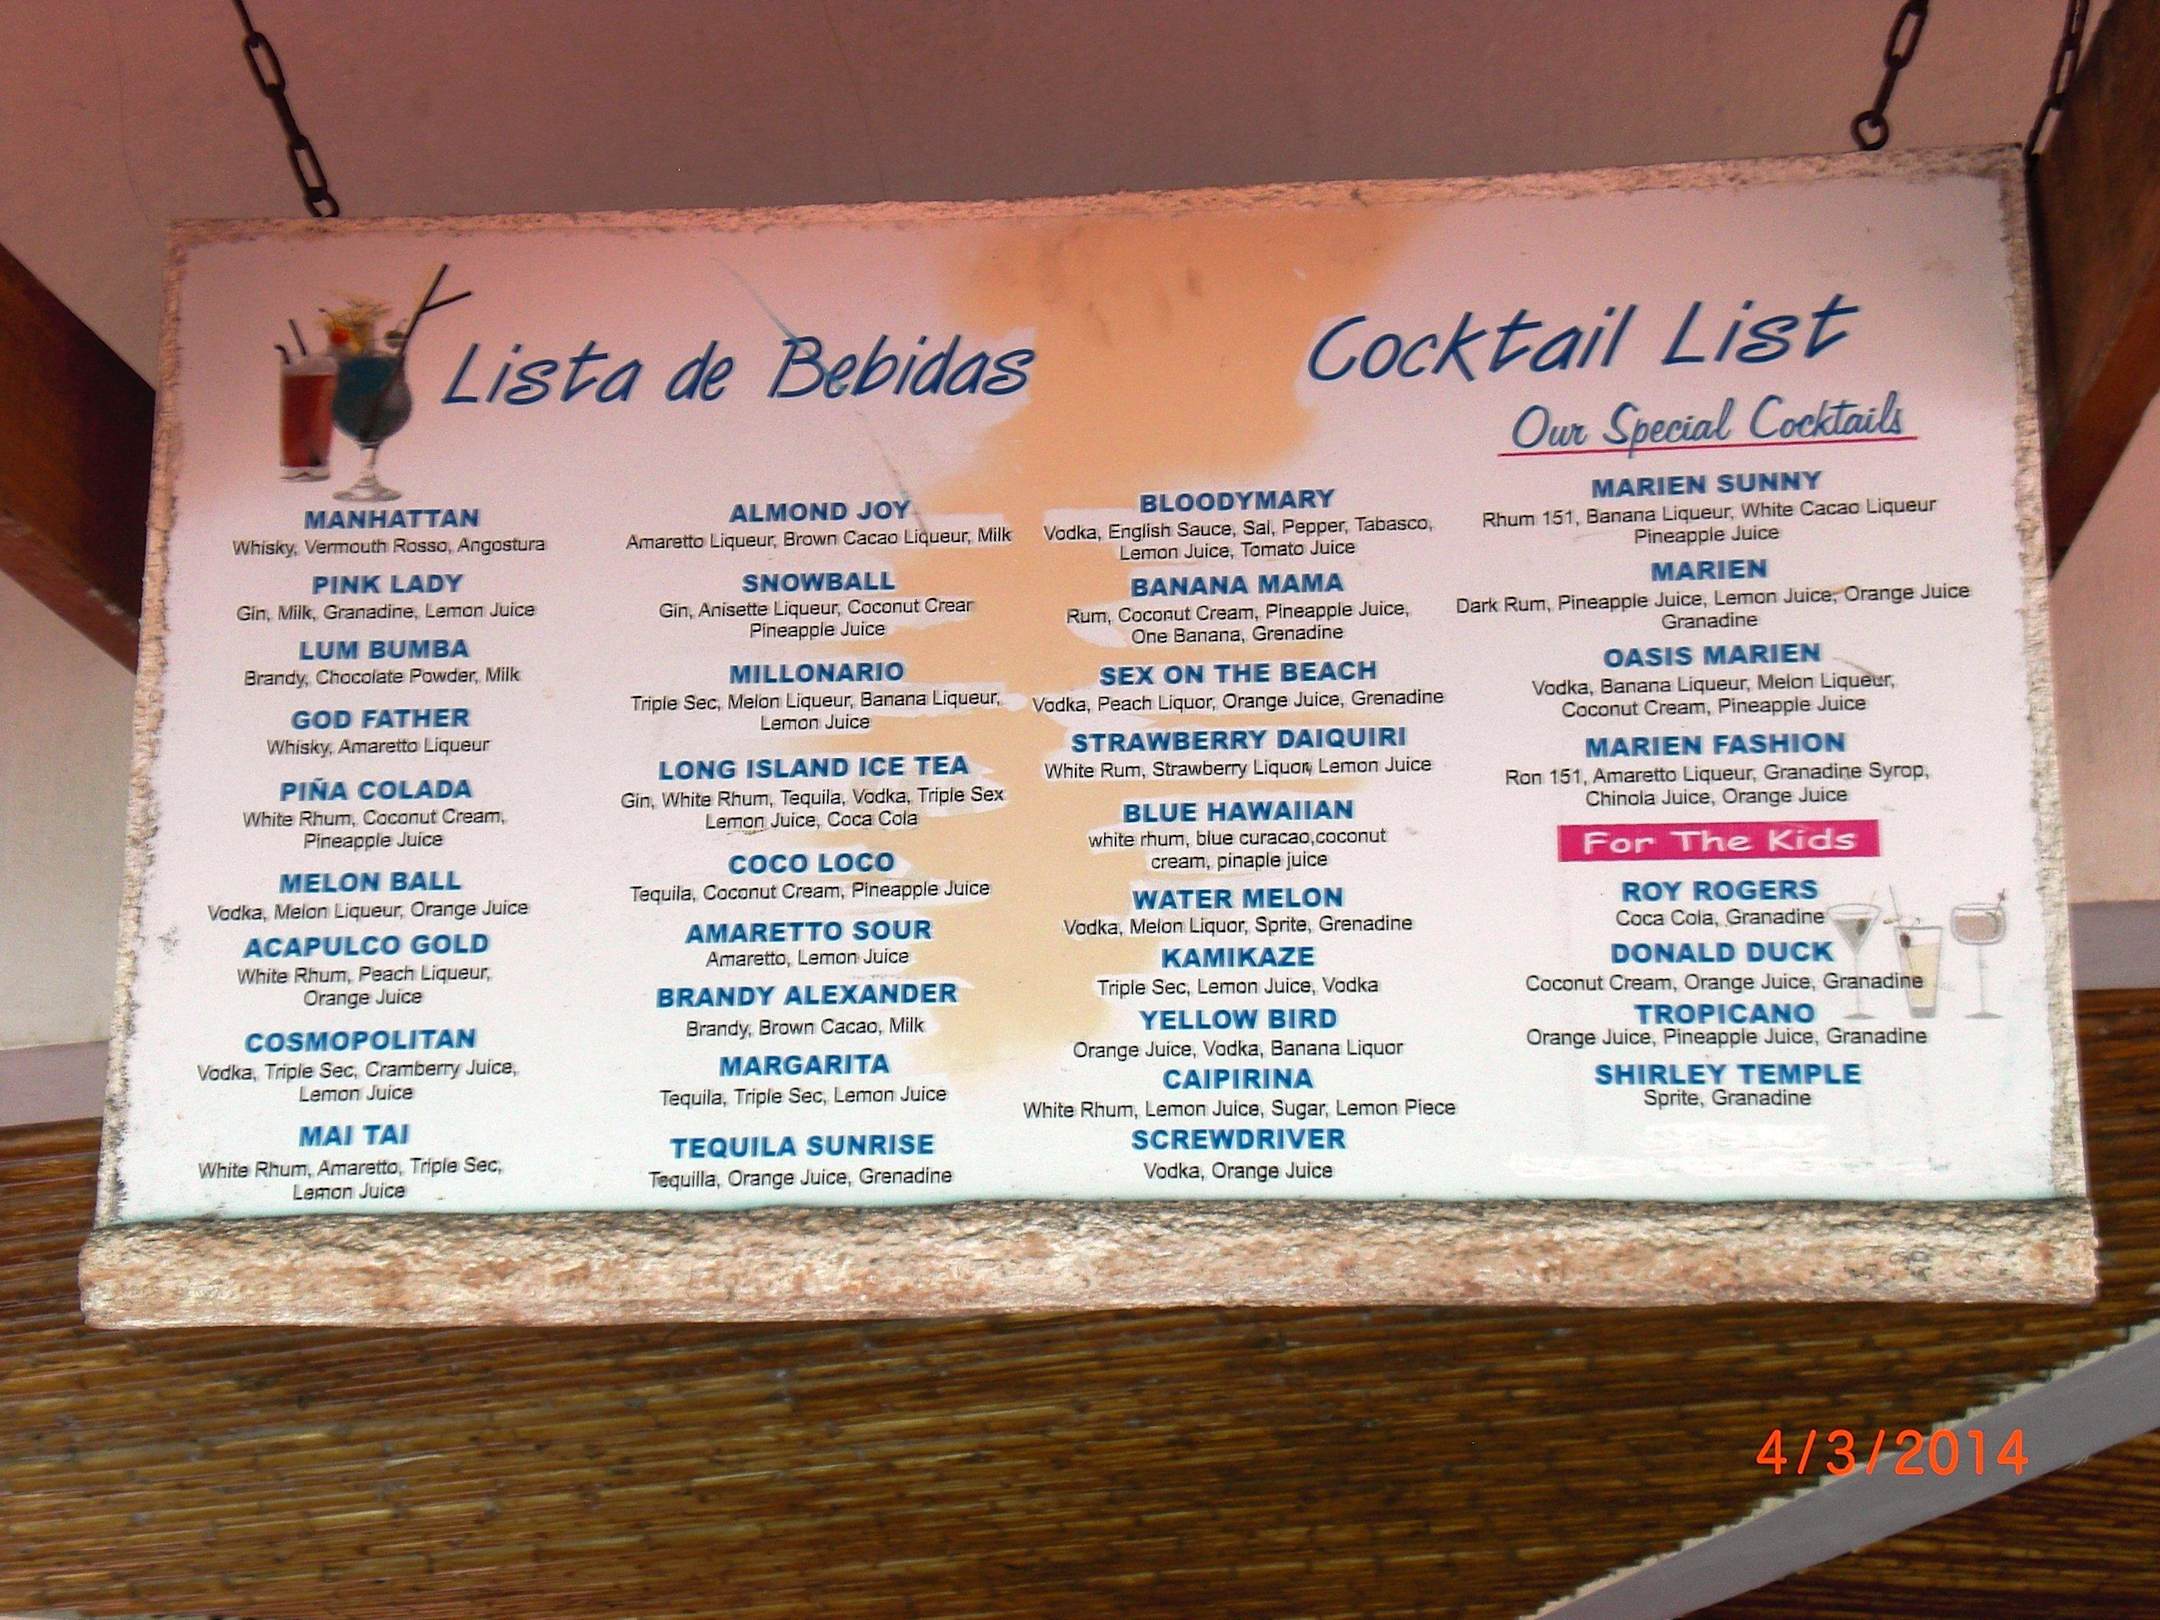 Lista de Bebidas
MANHATTAN
Whisky, Vermouth Rosso, Angostura
PINK LADY
Gin, Milk, Granadine, Lemon Juice
LUM BUMBA
Brandy, Chocolate Powder, Milk
GOD FATHER
Whisky, Amaretto Liqueur
PIÑA COLADA
White Rhum, Coconut Cream,
Pineapple Juice
MELON BALL
Vodka, Melon Liqueur, Orange Juice
ACAPULCO GOLD
White Rhum, Peach Liqueur,
Orange Juice
COSMOPOLITAN
Vodka, Triple Sec, Cramberry Juice,
Lemon Juice
MAI TAI
White Rhum, Amaretto, Triple Sec,
Lemon Juice
ALMOND JOY
Amaretto Liqueur, Brown Cacao Liqueur, Milk
SNOWBALL
Gin, Anisette Liqueur, Coconut Crear
Pineapple Juice
MILLONARIO
Triple Sec, Melon Liqueur, Banana Liqueur,
Lemon Juice
LONG ISLAND ICE TEA
Gin, White Rhum, Tequila, Vodka, Triple Sex
Lemon Juice, Coca Cola
COCO LOCO
Tequila, Coconut Cream, Pineapple Juice
AMARETTO SOUR
Amaretto, Lemon Juice
BRANDY ALEXANDER
Brandy, Brown Cacao, Milk
MARGARITA
Tequila, Triple Sec, Lemon Juice
TEQUILA SUNRISE
Tequilla, Orange Juice, Grenadine
Cocktail List
BLOODYMARY
Vodka, English Sauce, Sal, Pepper, Tabasco,
Lemon Juice, Tomato Juice
BANANA MAMA
Rum, Coconut Cream, Pineapple Juice,
One Banana, Grenadine
SEX ON THE BEACH
Vodka, Peach Liquor, Orange Juice, Grenadine
STRAWBERRY DAIQUIRI
White Rum, Strawberry Liquor, Lemon Juice
BLUE HAWAIIAN
white rhum, blue curacao,coconut
cream, pinaple juice
WATER MELON
Vodka, Melon Liquor, Sprite, Grenadine
KAMIKAZE
Triple Sec, Lemon Juice, Vodka
YELLOW BIRD
Orange Juice, Vodka, Banana Liquor
CAIPIRINA
White Rhum, Lemon Juice, Sugar, Lemon Piece
SCREWDRIVER
Vodka, Orange Juice
Our Special Cocktails
MARIEN SUNNY
Rhum 151, Banana Liqueur, White Cacao Liqueur
Pineapple Juice
MARIEN
Dark Rum, Pineapple Juice, Lemon Juice, Orange Juice
Granadine
OASIS MARIEN
Vodka, Banana Liqueur, Melon Liqueur,
Coconut Cream, Pineapple Juice
MARIEN FASHION
Ron 151, Amaretto Liqueur, Granadine Syrop,
Chinola Juice, Orange Juice
For The Kids
ROY ROGERS
Coca Cola, Granadine
DONALD DUCK
Coconut Cream, Orange Juice, Granadine
TROPICANO
Orange Juice, Pineapple Juice, Granadine
SHIRLEY TEMPLE
Sprite, Granadine
4/3/2014